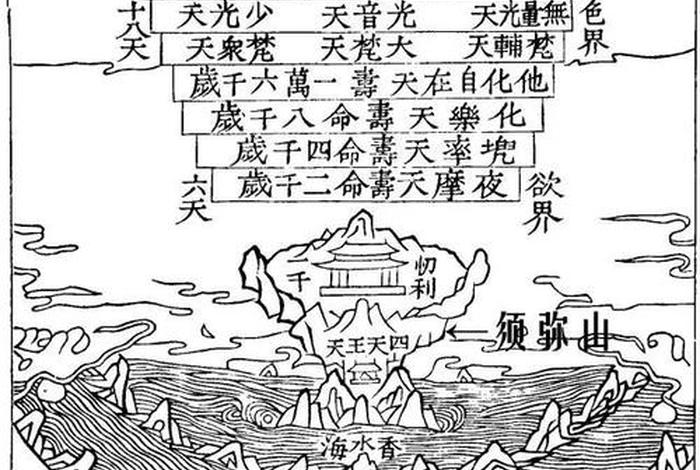 色界
無量光天 光音天 少光天
十八天
梵輔天 大梵天 梵衆天
他化自在天壽一萬六千歲
化樂天壽命八千歲
兜率天壽命四千歲
夜摩天壽命二千歲
欲界
六天
忉利
千
四天王天
须弥山
香水海